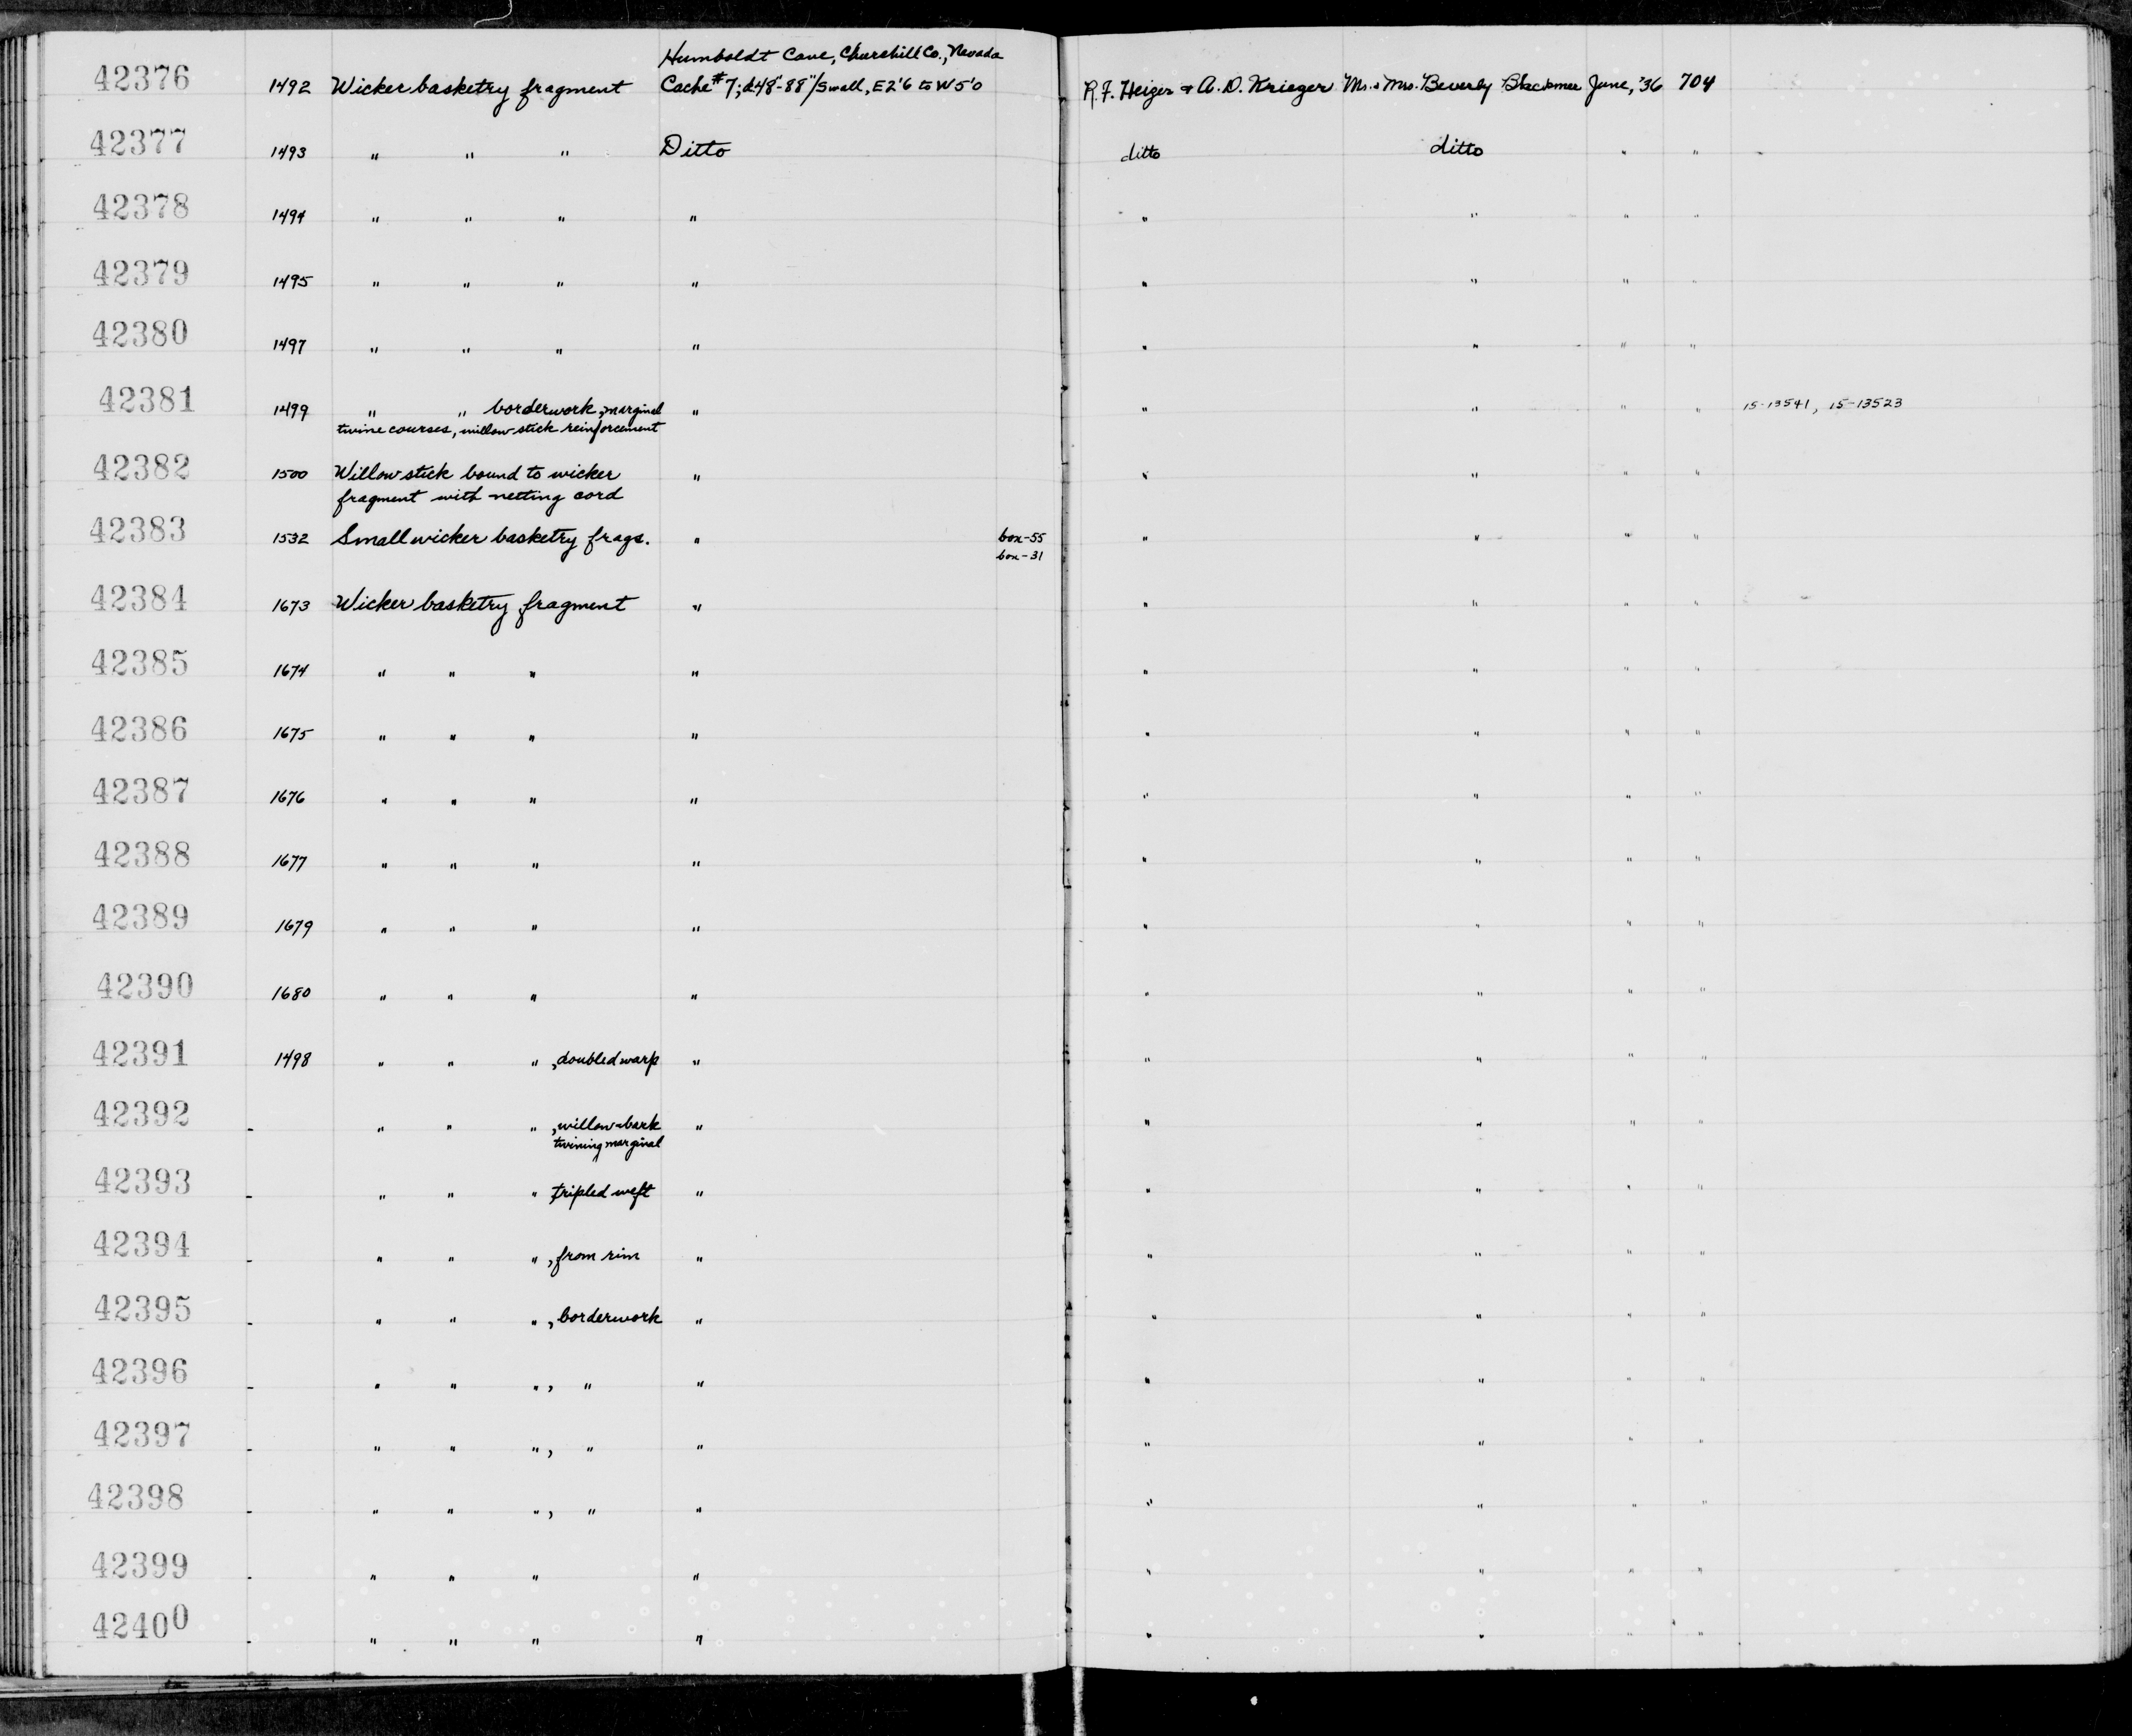 Humboldt Cave, Churchill Co., Nevada
42376 1492 Wicker basketry fragment Cache #7; d48"-88"/S wall, E2'6 to W5'0 R.F. Heizer & A.D. Krieger Mr. & Mrs. Beverly Blackmer June, '36 704
42377 1493 " " " Ditto ditto ditto " "
42378 1494 " " " " " " " "
42379 1495 " " " " " " " "
42380 1497 " " " " " " " "
42381 1499 " " borderwork, marginal " " " " " 15-13541, 15-13523
twine courses, willow stick reinforcement
42382 1500 Willow stick bound to wicker " " " " "
fragment with netting cord
42383 1532 Small wicker basketry frags. " box-55 " " " "
box-31
42384 1673 Wicker basketry fragment " " " " "
42385 1674 " " " " " " " "
42386 1675 " " " " " " " "
42387 1676 " " " " " " " "
42388 1677 " " " " " " " "
42389 1679 " " " " " " " "
42390 1680 " " " " " " " "
42391 1498 " " ", doubled warp " " " " "
42392 - " " ", willow-bark " " " " "
twining marginal
42393 - " " " tripled weft " " " " "
42394 - " " ", from rim " " " " "
42395 - " " ", borderwork " " " " "
42396 - " " ", " " " " " "
42397 - " " ", " " " " " "
42398 - " " ", " " " " " "
42399 - " " " " " " " "
42400 - " " " " " " " "